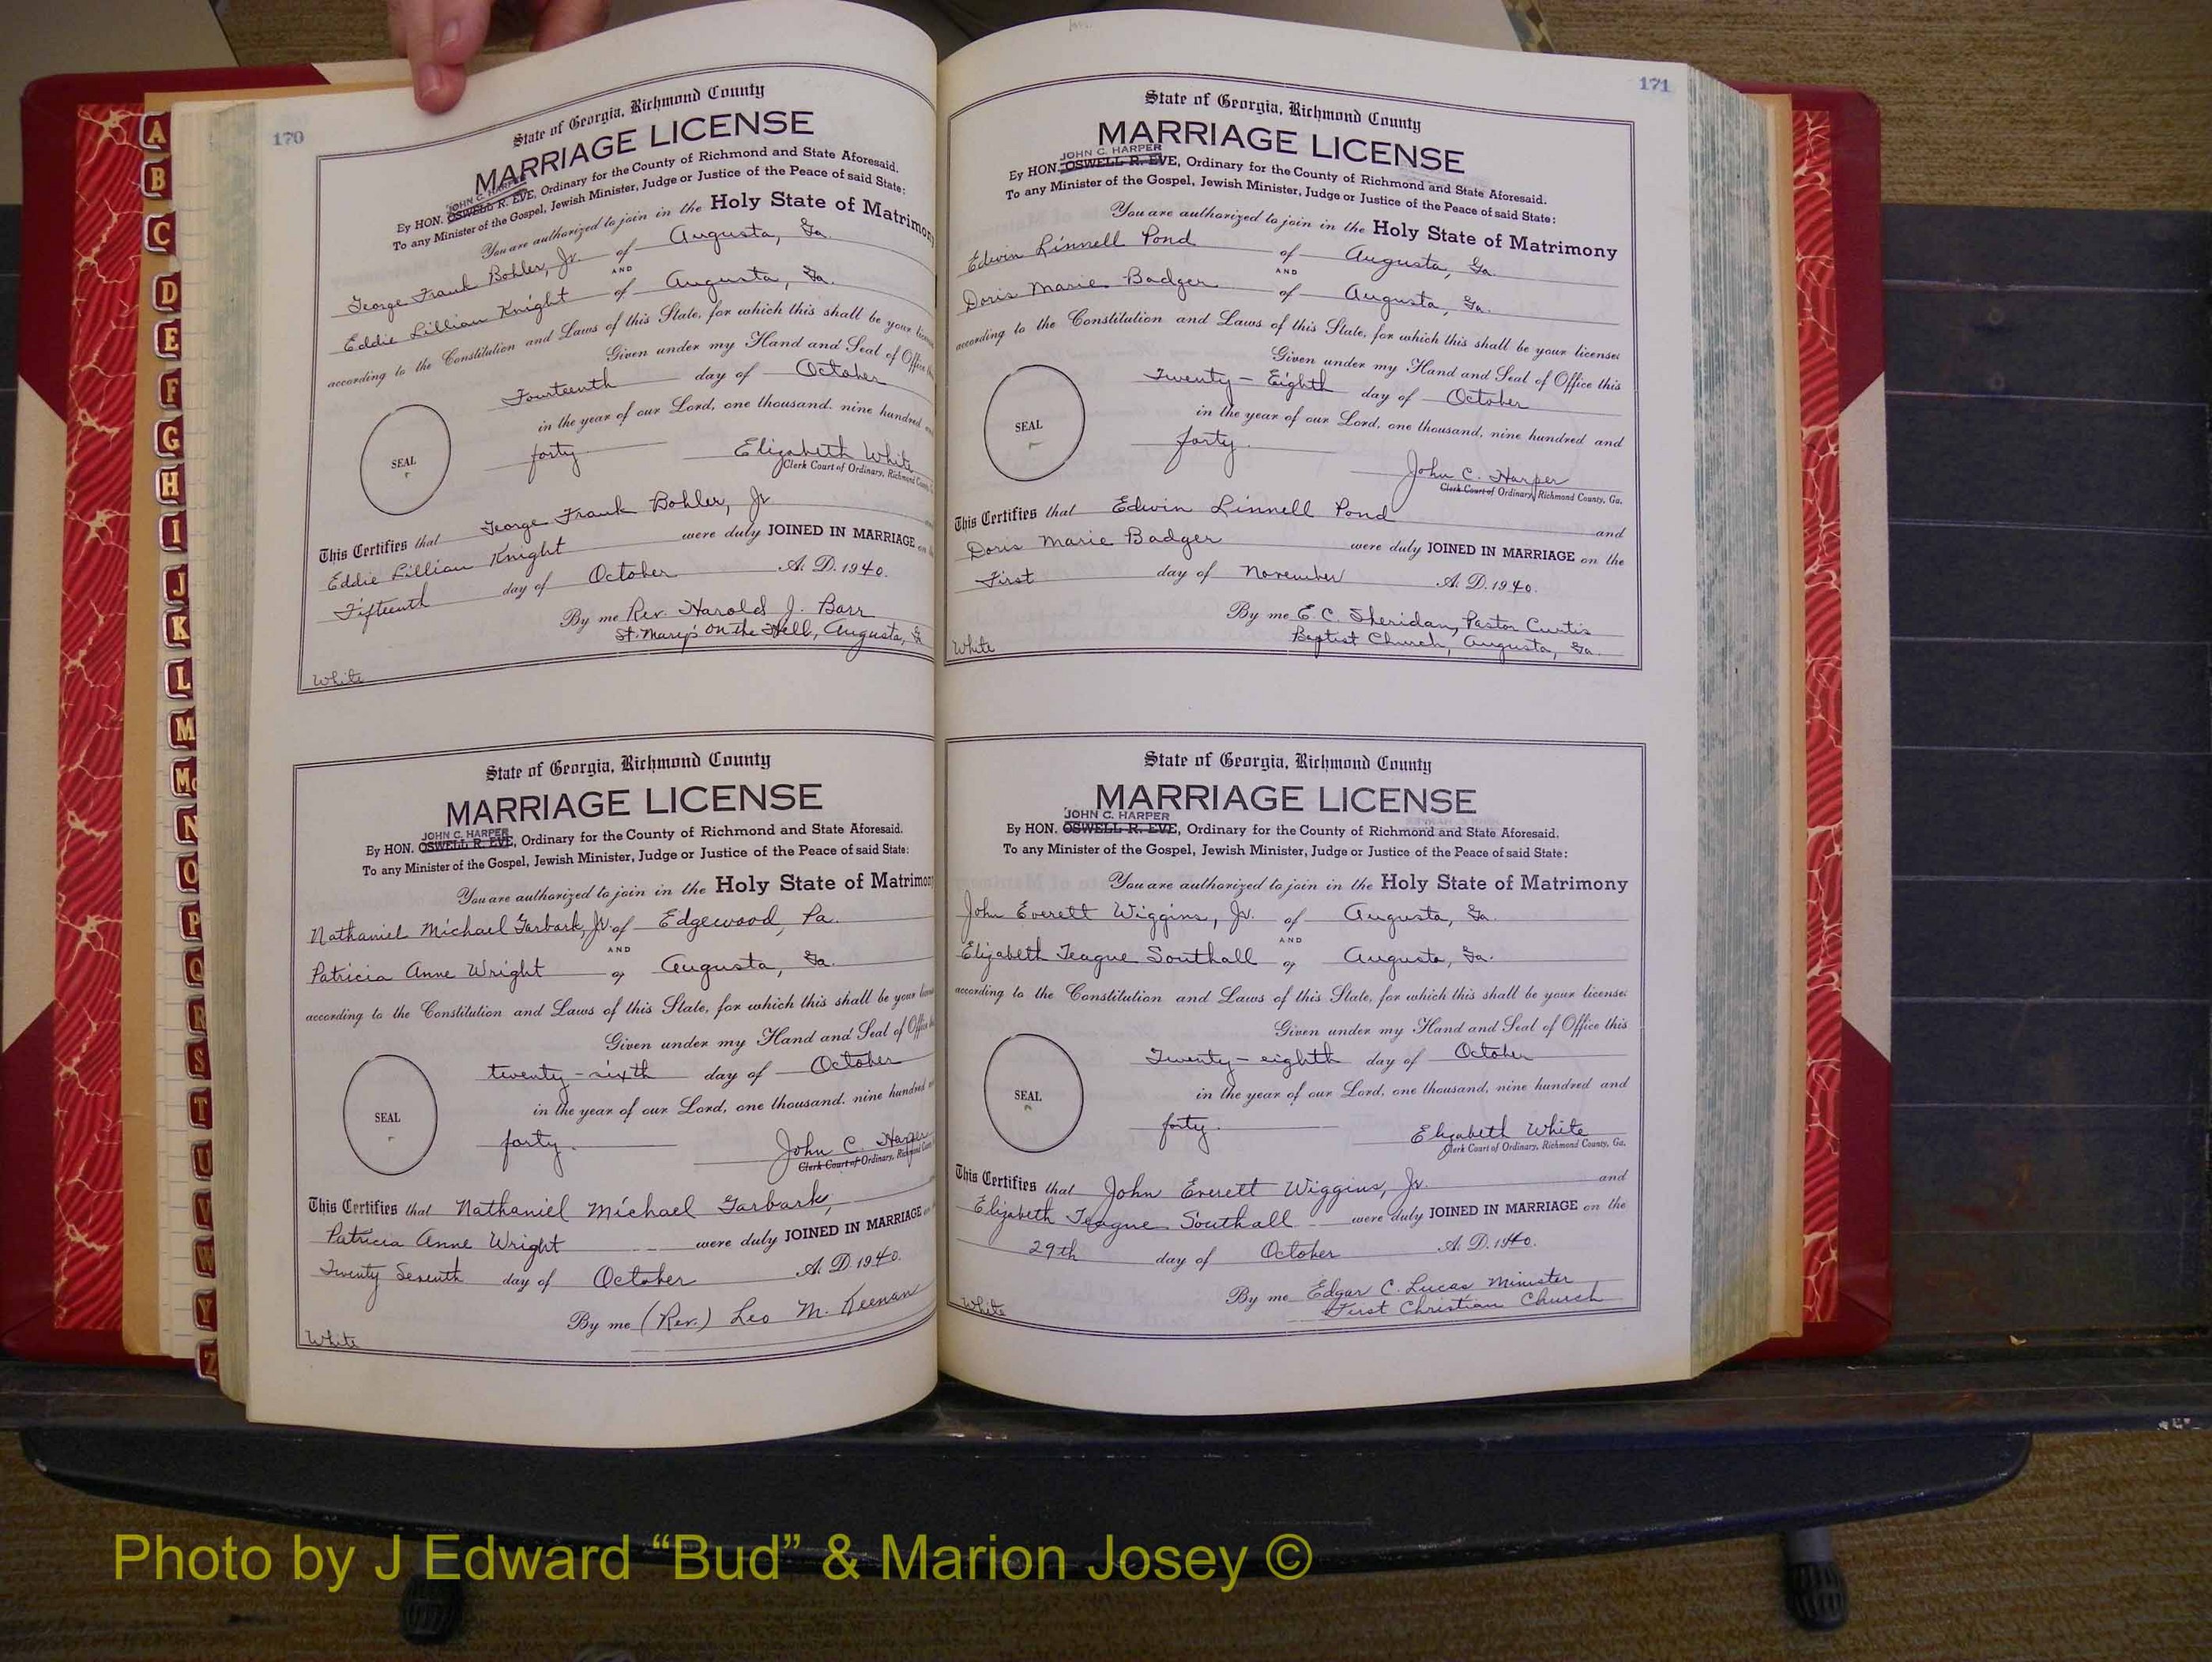 170
State of Georgia, Richmond County
MARRIAGE LICENSE
JOHN C. HARPER
By HON. OSWELL R. EVE, Ordinary for the County of Richmond and State Aforesaid.
To any Minister of the Gospel, Jewish Minister, Judge or Justice of the Peace of said State:
You are authorized to join in the Holy State of Matrimony
George Frank Bohler, Jr. of Augusta, Ga.
AND
Eddie Lillian Knight of Augusta, Ga.
according to the Constitution and Laws of this State, for which this shall be your
Given under my Hand and Seal of Office
Fourteenth day of October
in the year of our Lord, one thousand, nine hundred
SEAL
forty Elizabeth White
Clerk Court of Ordinary, Richmond
This Certifies that George Frank Bohler, Jr
Eddie Lillian Knight were duly JOINED IN MARRIAGE
Fifteenth day of October A. D. 1940.
By me Rev. Harold J. Barr
St. Mary's on the Hill, Augusta,
White
State of Georgia, Richmond County
MARRIAGE LICENSE
JOHN C. HARPER
By HON. OSWELL R. EVE, Ordinary for the County of Richmond and State Aforesaid.
To any Minister of the Gospel, Jewish Minister, Judge or Justice of the Peace of said State:
You are authorized to join in the Holy State of Matrimony
Nathaniel Michael Garbark, Jr. of Edgewood, Pa.
AND
Patricia Anne Wright of Augusta, Ga.
according to the Constitution and Laws of this State, for which this shall be your
Given under my Hand and Seal of Office
twenty-sixth day of October
in the year of our Lord, one thousand, nine hundred
SEAL
forty. John C. Harper
Clerk Court of Ordinary, Richmond
This Certifies that Nathaniel Michael Garbark,
Patricia Anne Wright were duly JOINED IN MARRIAGE
Twenty Seventh day of October A. D. 1940.
By me (Rev.) Leo M. Keenan
White
171
State of Georgia, Richmond County
MARRIAGE LICENSE
JOHN C. HARPER
By HON. OSWELL R. EVE, Ordinary for the County of Richmond and State Aforesaid.
To any Minister of the Gospel, Jewish Minister, Judge or Justice of the Peace of said State:
You are authorized to join in the Holy State of Matrimony
Edwin Linnell Pond of Augusta, Ga.
AND
Doris Marie Badger of Augusta, Ga.
according to the Constitution and Laws of this State, for which this shall be your license:
Given under my Hand and Seal of Office this
Twenty-Eighth day of October
in the year of our Lord, one thousand, nine hundred and
SEAL
forty. John C. Harper
Clerk Court of Ordinary, Richmond County, Ga.
This Certifies that Edwin Linnell Pond and
Doris Marie Badger were duly JOINED IN MARRIAGE on the
First day of November A. D. 1940.
By me E. C. Sheridan, Pastor Curtis
Baptist Church, Augusta, Ga.
White
State of Georgia, Richmond County
MARRIAGE LICENSE
JOHN C. HARPER
By HON. OSWELL R. EVE, Ordinary for the County of Richmond and State Aforesaid.
To any Minister of the Gospel, Jewish Minister, Judge or Justice of the Peace of said State:
You are authorized to join in the Holy State of Matrimony
John Everett Wiggins, Jr. of Augusta, Ga.
AND
Elizabeth Teague Southall of Augusta, Ga.
according to the Constitution and Laws of this State, for which this shall be your license:
Given under my Hand and Seal of Office this
Twenty-eighth day of October
in the year of our Lord, one thousand, nine hundred and
SEAL
forty. Elizabeth White
Clerk Court of Ordinary, Richmond County, Ga.
This Certifies that John Everett Wiggins, Jr. and
Elizabeth Teague Southall were duly JOINED IN MARRIAGE on the
29th day of October A. D. 1940.
By me Edgar C. Lucas Minister
First Christian Church
White
A
B
C
D
E
F
G
H
I
J
K
L
M
Mc
N
O
P
Q
R
S
T
U
V
W
Y
Z
Photo by J Edward “Bud” & Marion Josey ©